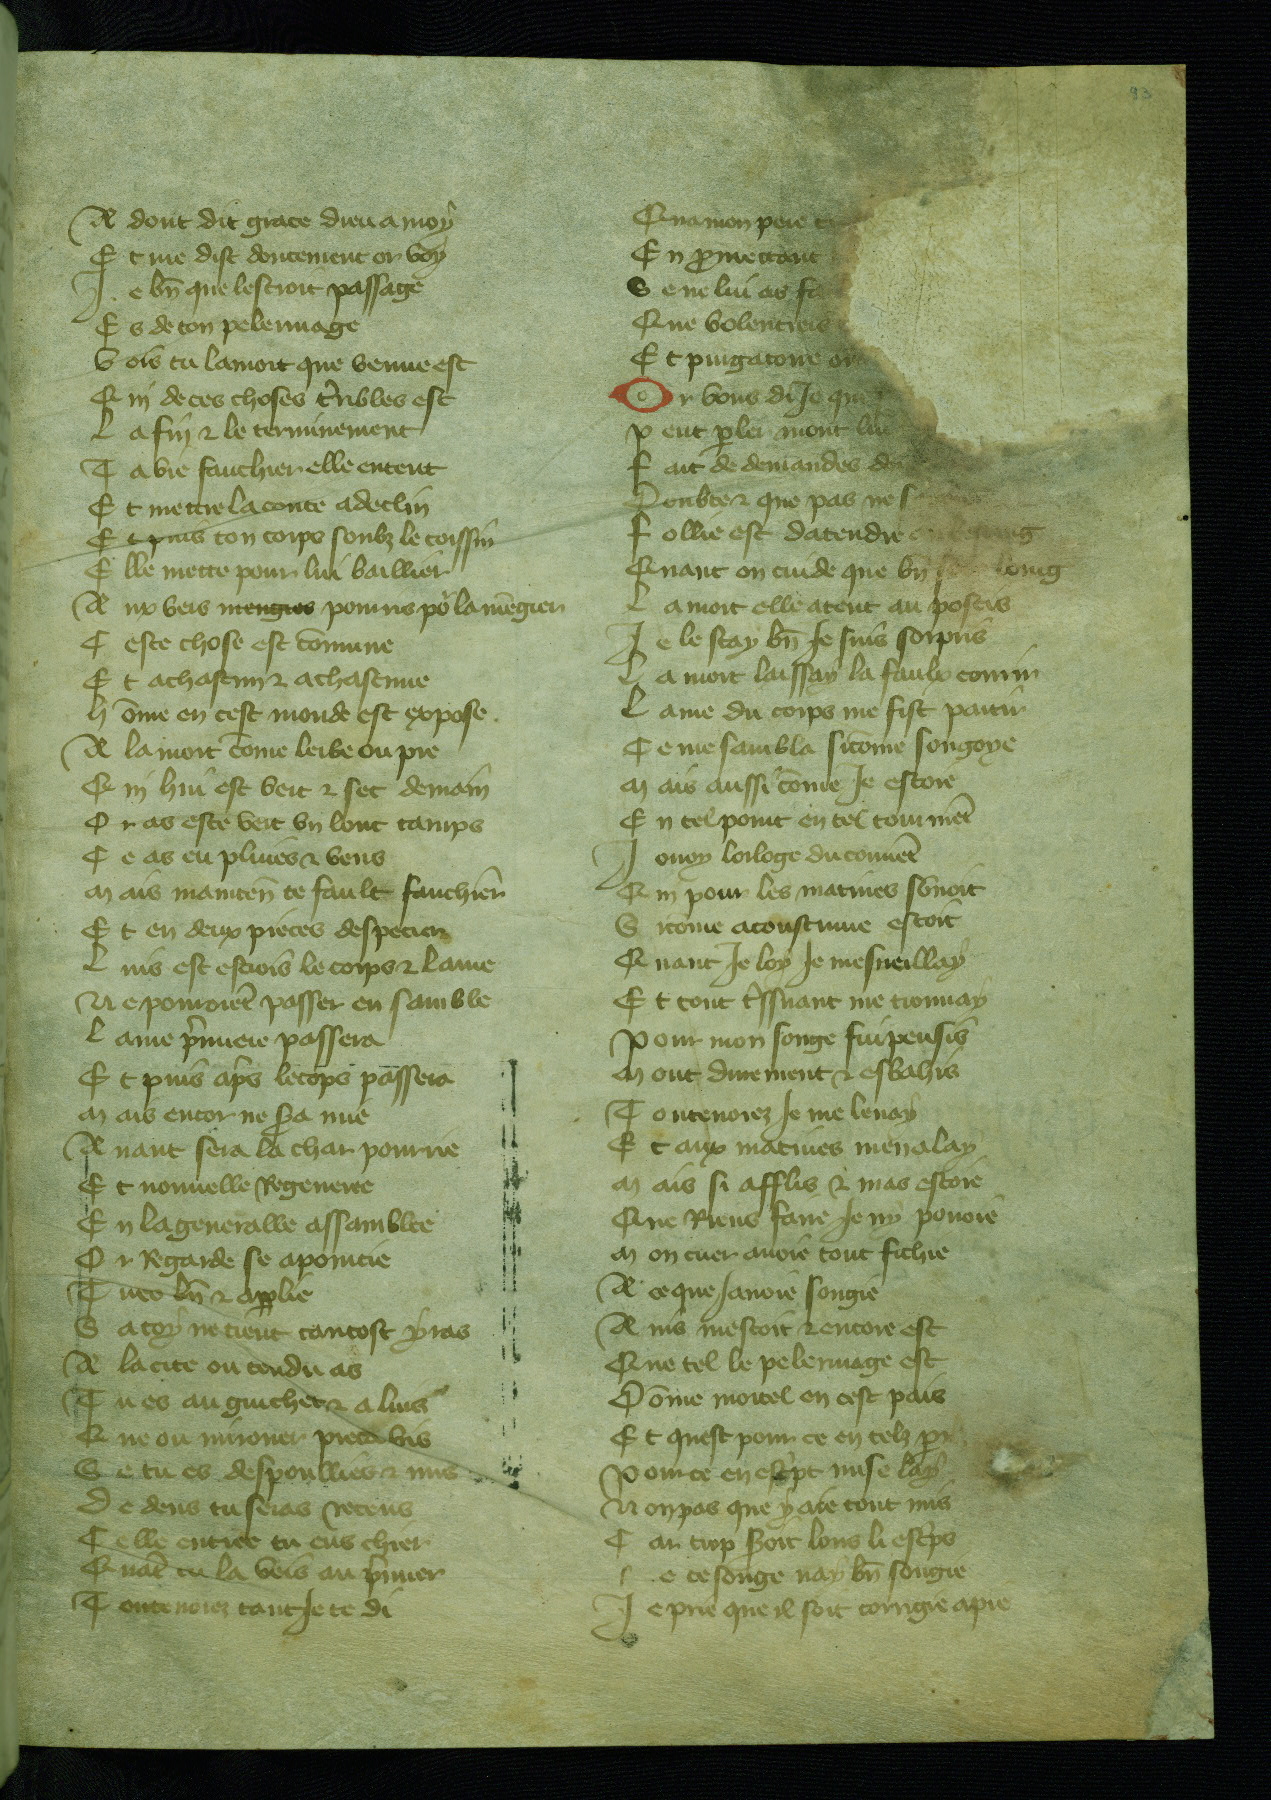 93
A dont dit grace dieu a moy
E t me dist doucement or voy
J e bn̄ que lestroit passage
E s de ton pelerinage
V ois tu la mort que venue est
Q ui de ces choses t'ribles est
L a fin ⁊ le terminement
T a vie fauchier elle entent
E t mettre la conte a declin
E t puis ton corps soubz le coissin
E lle mette pour lui baillier
A ux vers mengies pourris po' la mēgier
C este chose est cōmune
E t a chascun ⁊ a chascune
h ōme en cest monde est expose
A la mort cōme lerbe ou pre
Q ui hui est vert ⁊ sec demain
O r as este vert vn lonc tamps
C e as eu pluies ⁊ vens
M ais mainten̄ te fault fauchier
E t en deux pieces despecier
L uis est estrois le corps ⁊ lame
N e pourroiēt passer en samble
L ame p'miere passera
E t puis ap's le corps passera
M ais encor ne sa mie
A uant sera la char pourrie
E t nouuelle Regeneree
E n la generalle assamblee
O r Regarde se apointie
T u es bn̄ ⁊ applie
S a toy ne tient tantost yras
A la cite ou tendu as
T u es au guichet ⁊ a luis
Q ue ou mirouer pieca vis
S e tu es despoullies ⁊ nus
D e dens tu seras receus
C elle entree tu eus chier
Q uāt tu la veis au p'mier
T outeuoiez tant Je te di
Q ua mon pere
E n promettant
S e ne lui as
Q ue volentiers
E t purgatoire
O r vous di Je que
P eut parler mont
F ait de demandes
D oubter que pas ne
F ollie est datendre
Q uant on cuide que bn̄ loing
L a mort elle atent au postis
J e le scay bn̄ Je suis sorpris
L a mort laissay la faulx courrir
L ame du corps me fist partir
C e me sambla sicōme songoye
M ais aussi cōme Je estoie
E n tel point en tel tourmēt
J ouoy lorloge du couuēt
Q ui pour les matines sōnoit
S icōme acoustume estoit
Q uant Je loy Je mesueillay
E t tout t'ssuant me trouuay
P our mon songe fui pensis
M out durement ⁊ esbahis
T outeuoiez Je me leuay
E t aux matines men alay
M ais si afflis ⁊ mas estoie
Q ue Riens faire Je ny pouoie
M on cuer auoie tout fichie
A ce que Jauoie songie
A uis mestoit ⁊ encore est
Q ue tel le pelerinage est
D ōme mortel en cest pais
E t quest pour ce en telz
P our ce en esc'pt mise lay
N on pas que y aie tout mis
C ar trop seroit lons li esc'ps
e ce songe nay bn̄ songie
J e prie que il soit corrigie apre